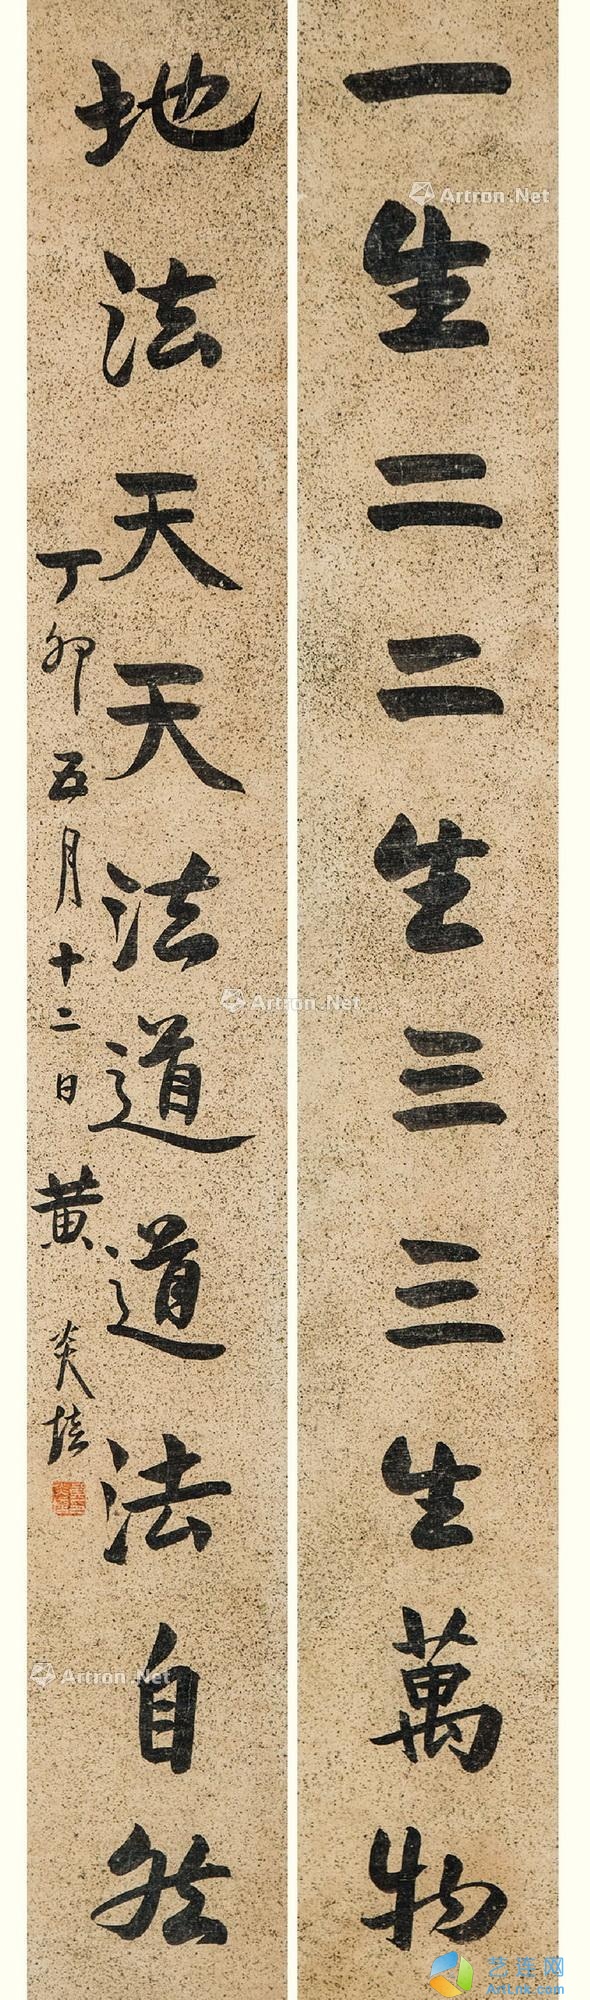 一生二二生三三生萬物
地法天天法道道法自然
丁卯五月十二日 黄炎培
Artron.Net
Artron.Net
Artron.Net
艺连网
Artlnk.com